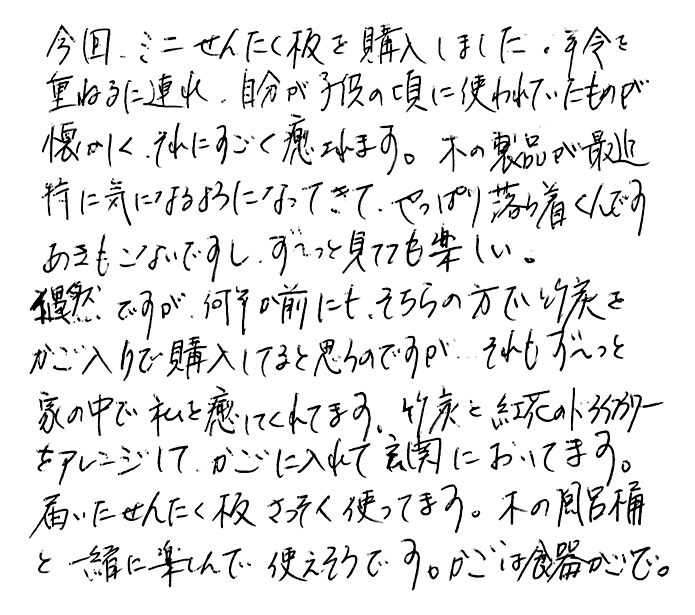 今回、ミニせんたく板を購入しました。年令を
重ねるに連れ、自分が子供の頃に使われていたものが
懐かしく、それにすごく癒されます。木の製品が最近
特に気になるようになってきて、やっぱり落ち着くんです
あきもこないですし、ず〜っと見てても楽しい。
偶然ですが、何年か前にも、そちらの方で竹炭を
かご入りで購入してると思うのですが、それもず〜っと
家の中で私を癒してくれてます。竹炭と紅花のドライフラワー
をアレンジして、かごに入れて玄関においてます。
届いたせんたく板さっそく使ってます。木の風呂桶
と一緒に楽しんで使えそうです。かごは食器かごで。